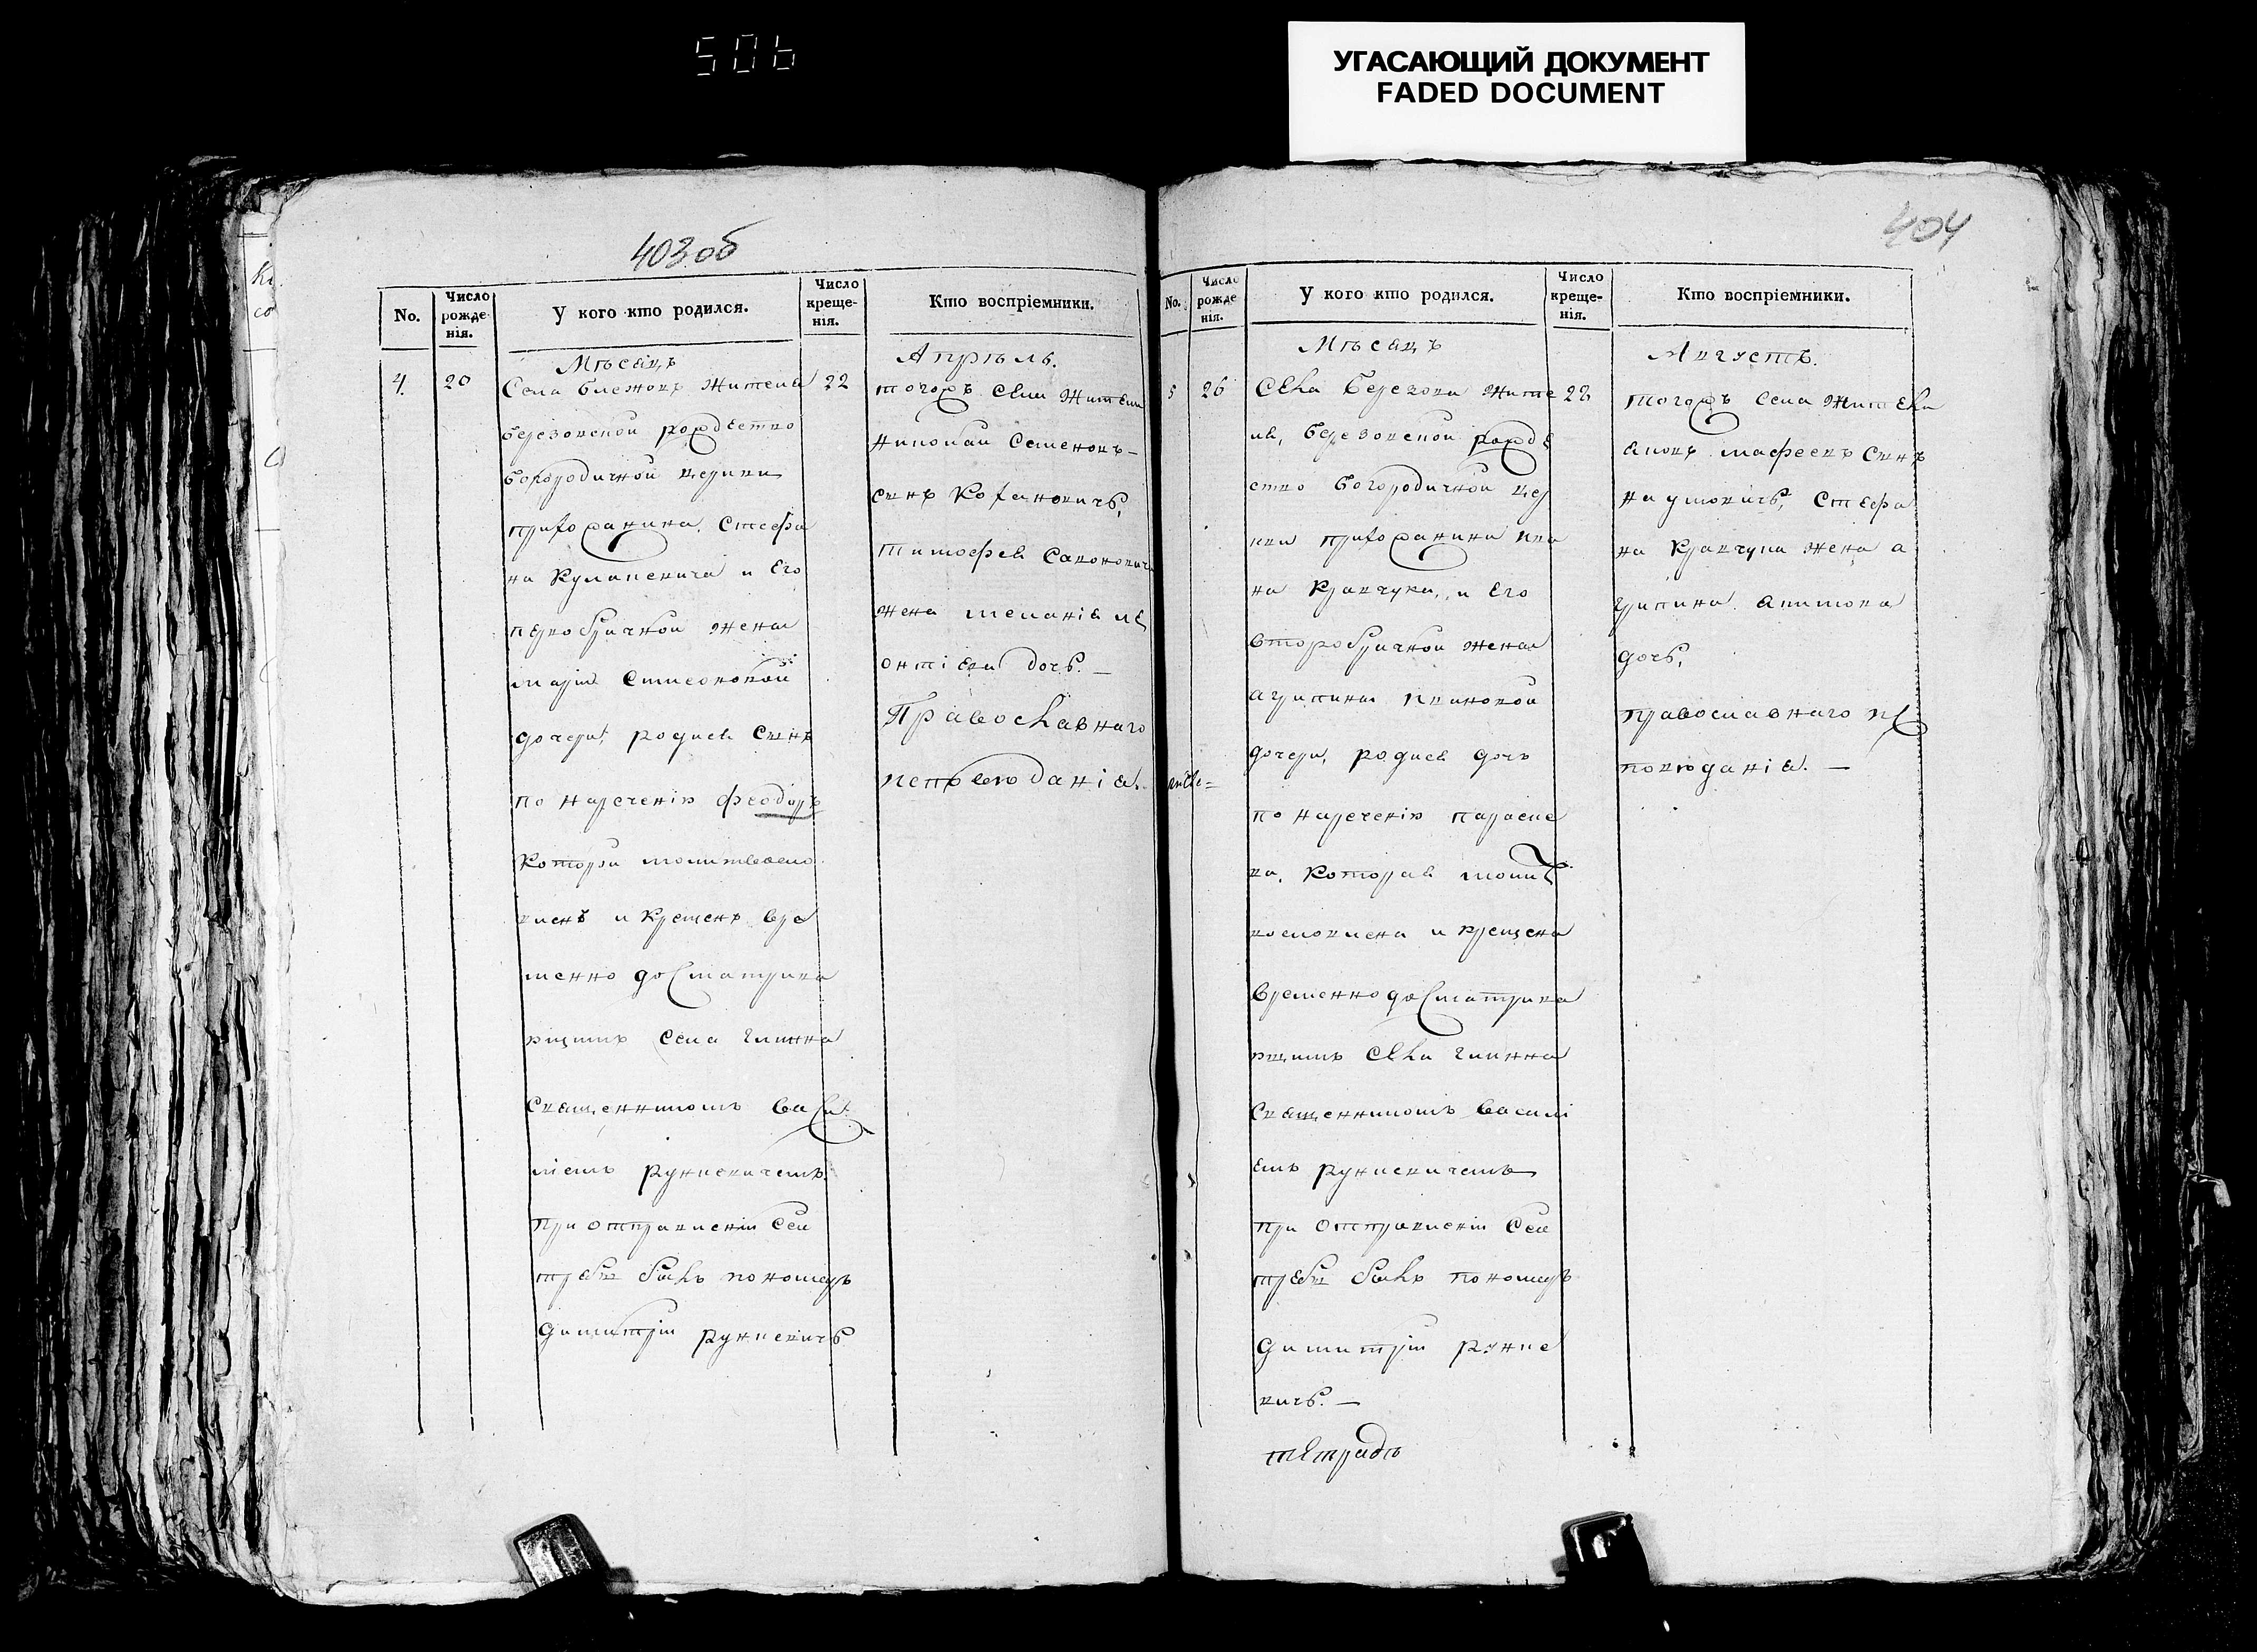 506
УГАСАЮЩИЙ ДОКУМЕНТ
FADED DOCUMENT
403об
No.
Число рожденія.
У кого кто родился.
Число крещенія.
Кто воспріемники.
Мѣсяцъ
Апрѣль.
4.
20
22
Села Жителя
березовской рождество
богородичной церкви
прихожанина Стефа
на и его
первобрачной жены
маріи Симеоновой
дочери, родися Сынъ
по нареченію феодоръ
Которой молитвосло
вленъ и Крещенъ вре
менно досматрива
ющимъ Села глинна
Священникомъ васи
ліемъ рункевичемъ
при отправленіи Сея
требы былъ пономаръ
димитрій рункевичъ
тогожъ Села Жители
николай Семеновъ
сынъ Кохановичъ,
тимофея
жена меланія ле
онтіева дочь. —
Православнаго
исповѣданія.
404
No.
Число рожденія.
У кого кто родился.
Число крещенія.
Кто воспріемники.
Мѣсяцъ
Августъ.
5
26
Села березова Жите
ля, березовской рожде
ство богородичной цер
кви прихожанина ива
на Кравчука, и его
второбрачной жены
агрипины ивановой
дочери, родися дочь
по нареченію параске
ва, Которая молит
вословлена и крещена
временно досматрива
ющимъ Села глинна
Священникомъ василі
емъ рункевичемъ
при отправленіи Сея
требы былъ пономаръ
димитрій рунке
вичъ. —
тетрадь
тогожъ Села Жители
яковъ матфеевъ Сынъ
наумовичъ, Стефа
на Кравчука жена а
грипина акимова
дочь,
православнаго ис
повѣданія. —